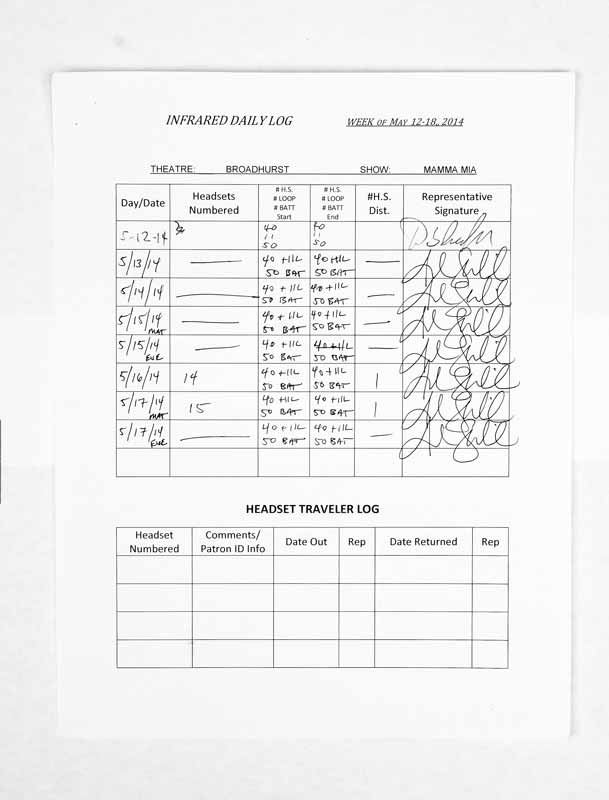 INFRARED DAILY LOG WEEK OF MAY 12-18, 2014
THEATRE: BROADHURST SHOW: MAMMA MIA
Day/Date Headsets Numbered # H.S. # LOOP # BATT Start # H.S. # LOOP # BATT End #H.S. Dist. Representative Signature
5-12-14 40 11 50 40 11 50
5/13/14 — 40 + 11L 50 BAT 40 + 11L 50 BAT —
5/14/14 — 40 + 11L 50 BAT 40 + 11L 50 BAT —
5/15/14 MAT — 40 + 11L 50 BAT 40 + 11L 50 BAT —
5/15/14 EVE — 40 + 11L 50 BAT 40 + 11L 50 BAT —
5/16/14 14 40 + 11L 50 BAT 40 + 11L 50 BAT 1
5/17/14 MAT 15 40 + 11L 50 BAT 40 + 11L 50 BAT 1
5/17/14 EVE — 40 + 11L 50 BAT 40 + 11L 50 BAT —
HEADSET TRAVELER LOG
Headset Numbered Comments/ Patron ID Info Date Out Rep Date Returned Rep